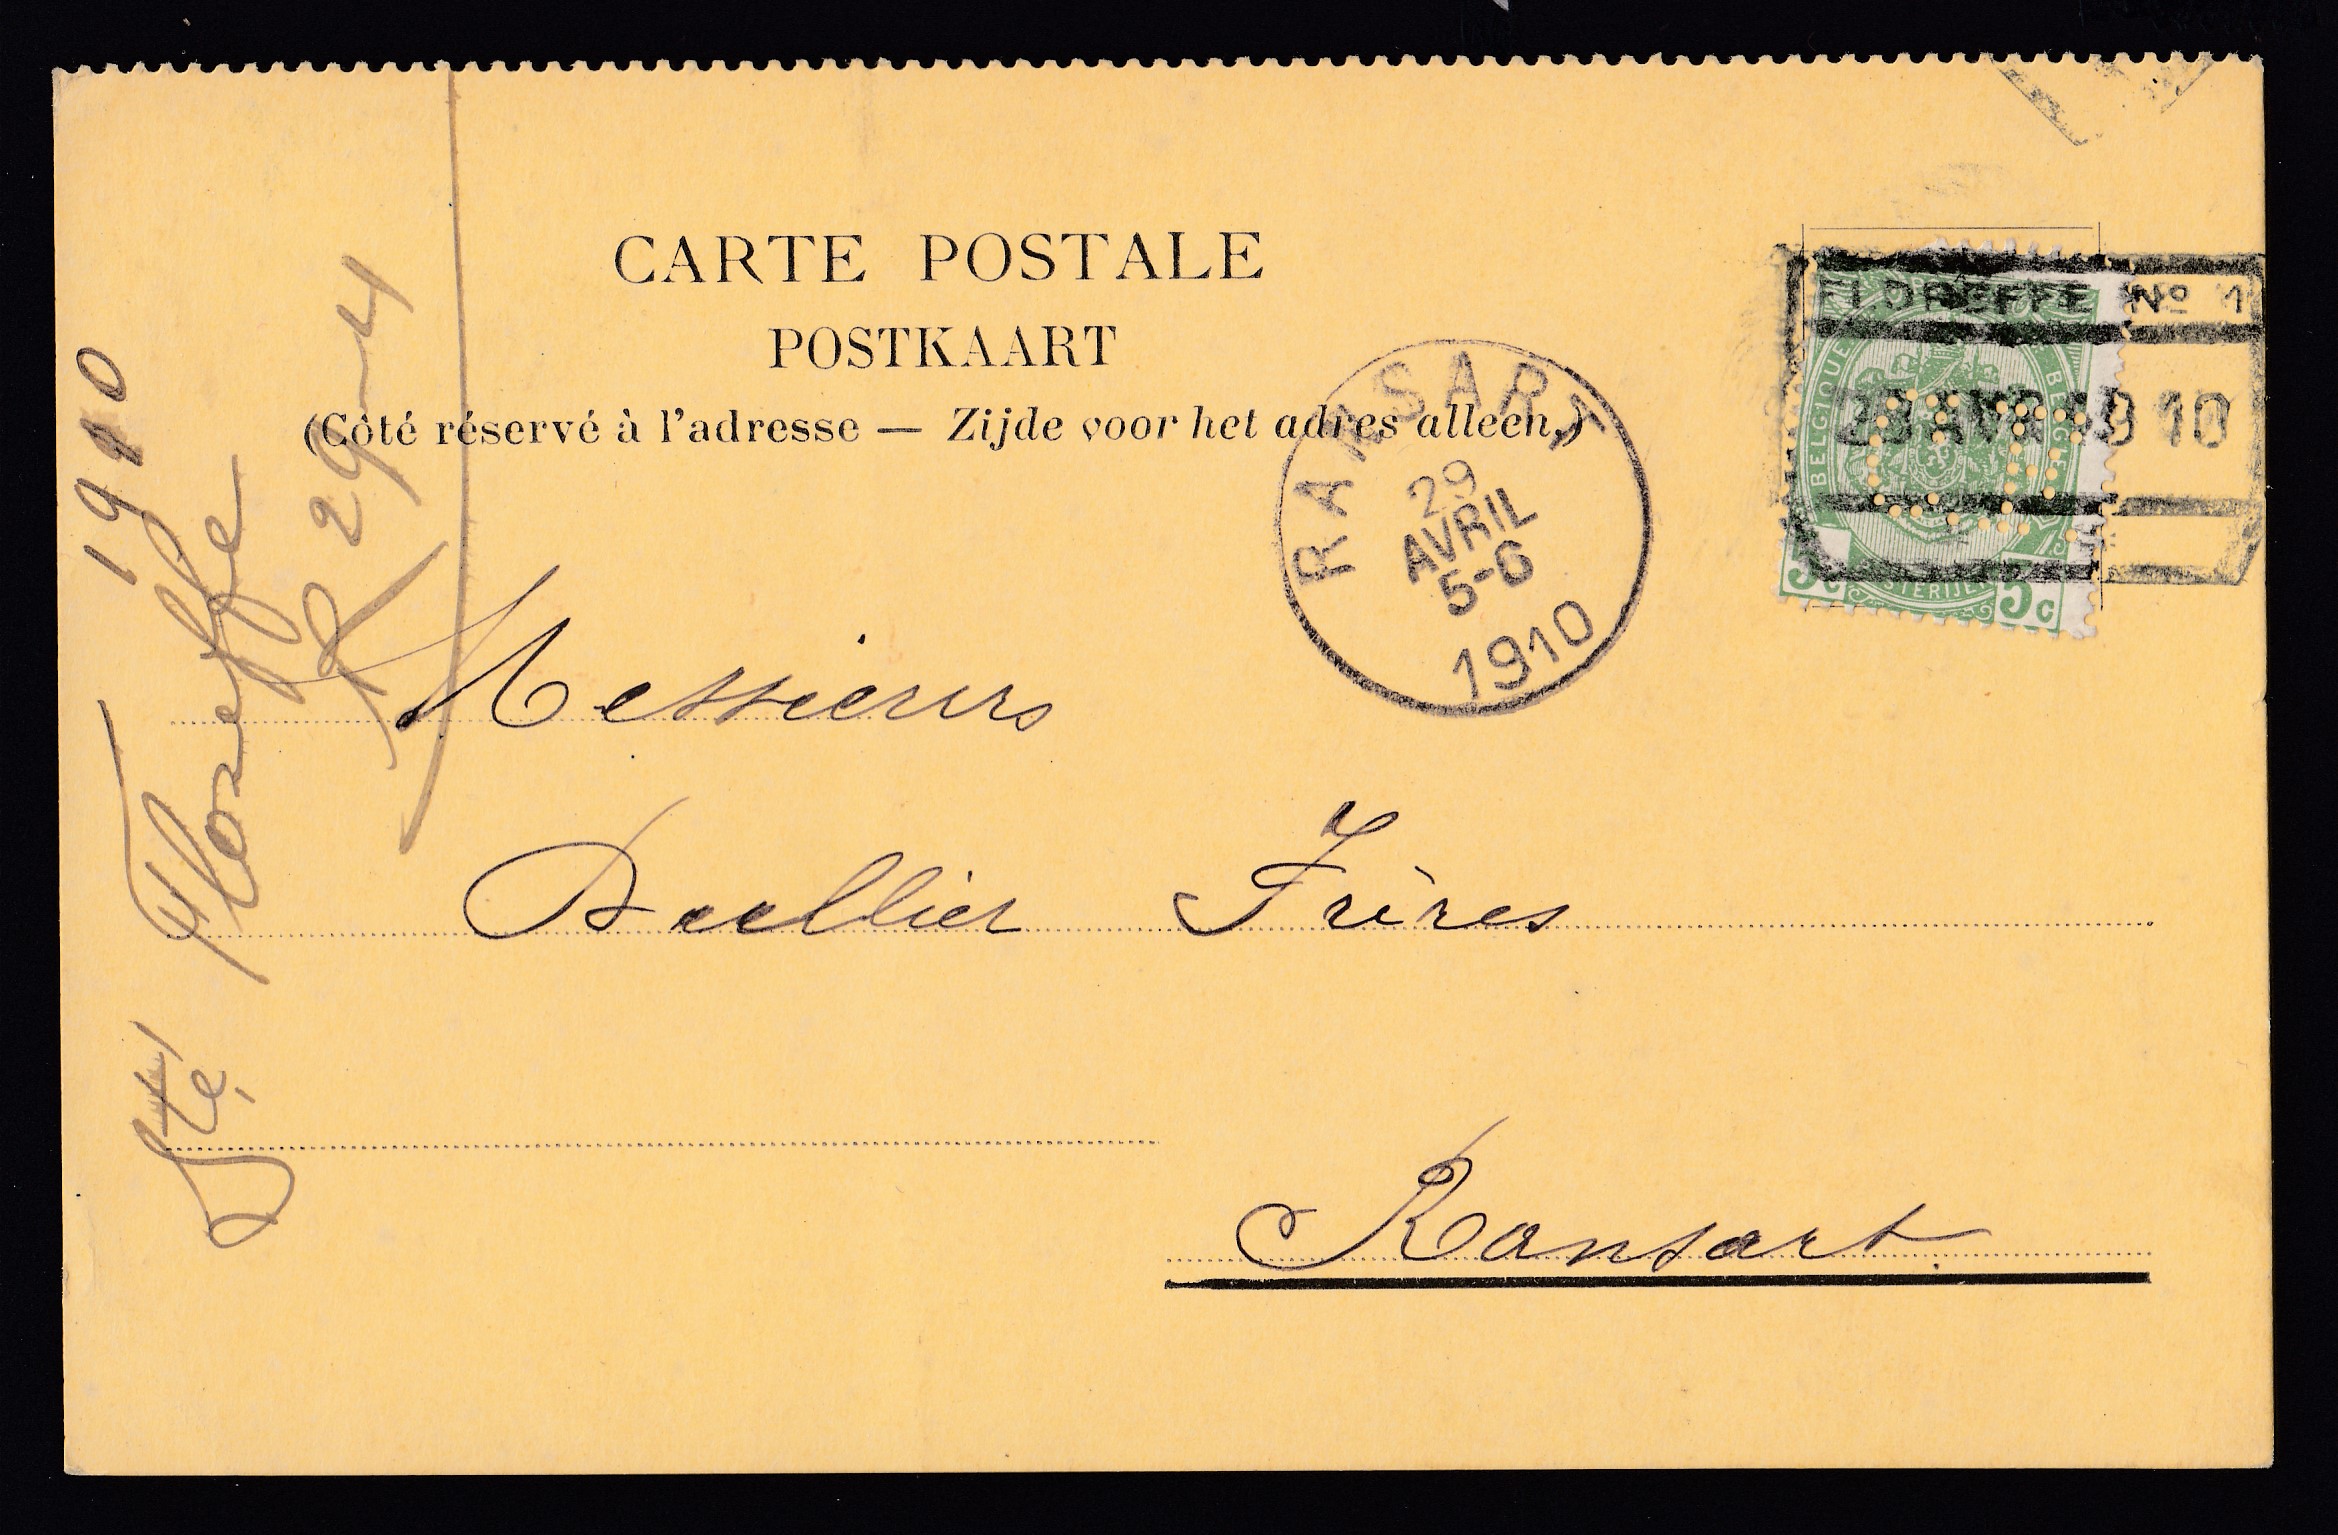 CARTE POSTALE
POSTKAART
(Côté réservé à l'adresse — Zijde voor het adres alleen.)
RANSART
29
AVRIL
5-6
1910
FLOREFFE Nº 1
AVR 1910
BELGIQUE
BELGIE
5c 5c
Messieurs
Frères
Ransart.
1910
Floreffe
R 29-4
Sté